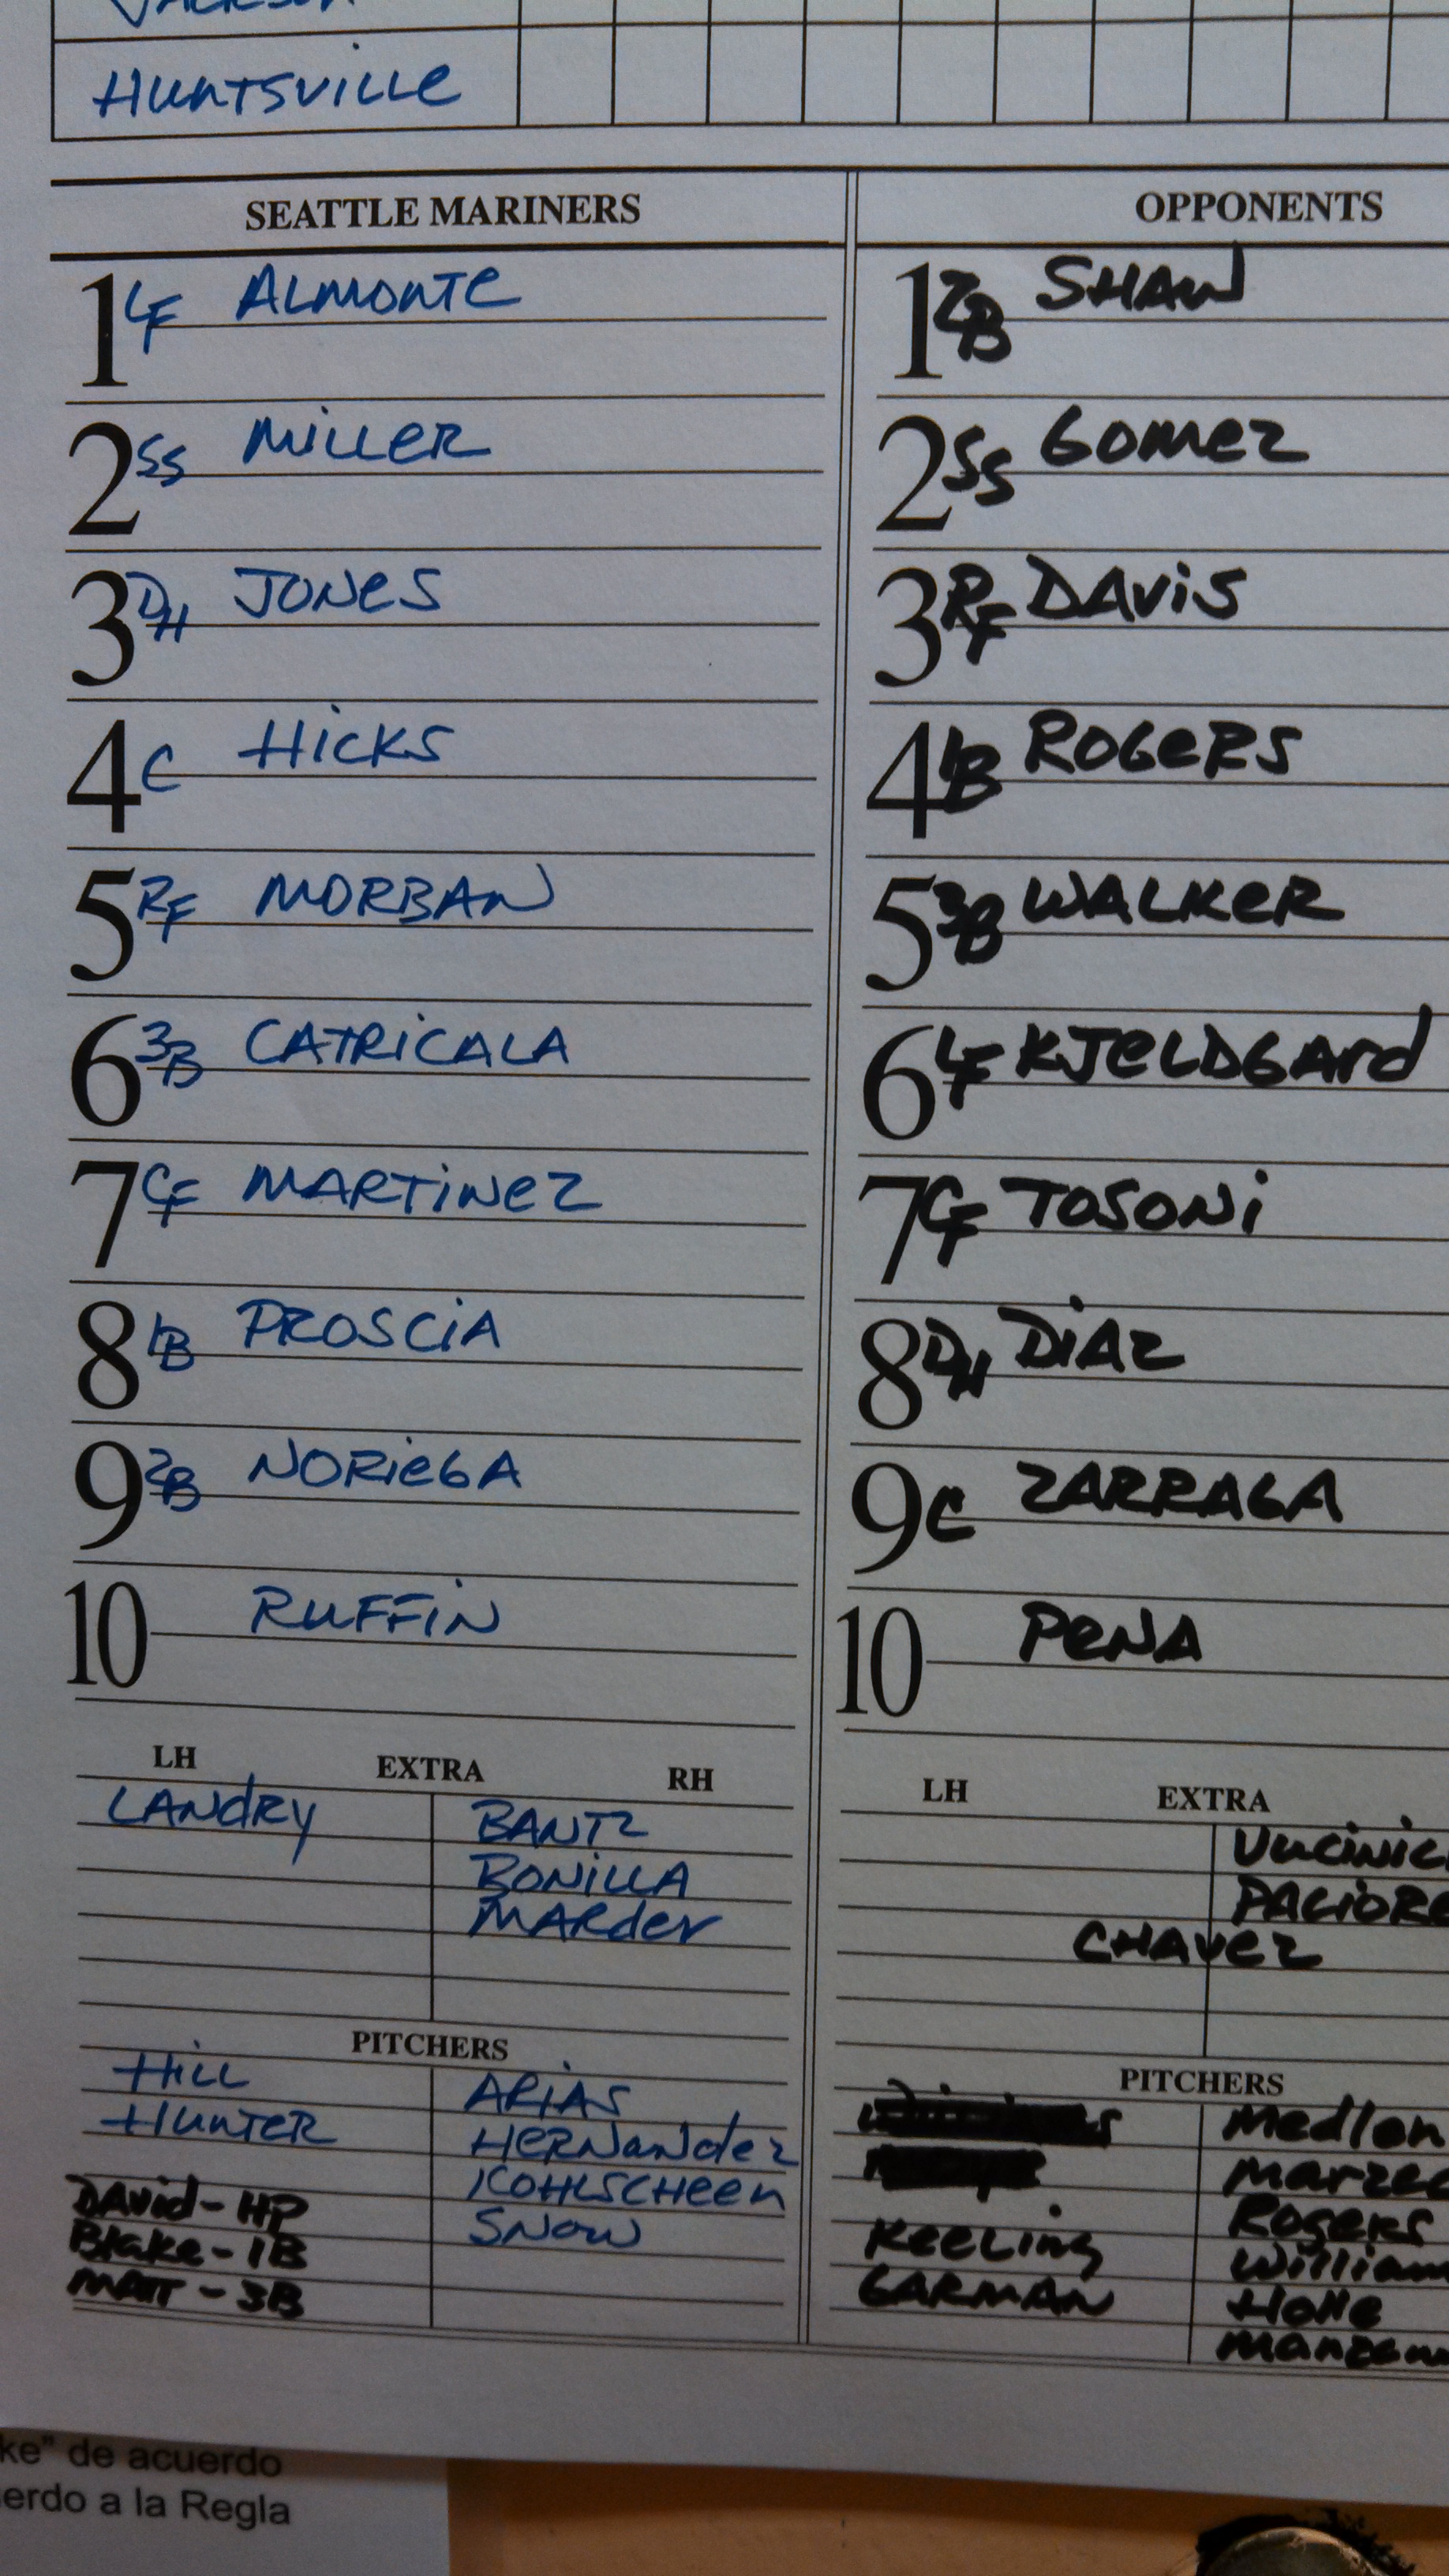 JACKSON
HUNTSVILLE
SEATTLE MARINERS
1 LF ALMONTE
2 SS MILLER
3 DH JONES
4 C HICKS
5 RF MORBAN
6 3B CATRICALA
7 CF MARTINEZ
8 1B PROSCIA
9 2B NORIEGA
10 RUFFIN
LH EXTRA RH
LANDRY BANTZ
BONILLA
MARDER
PITCHERS
HILL ARIAS
HUNTER HERNANDEZ
KOHLSCHEEN
DAVID-HP SNOW
BLAKE-1B
MATT-3B
OPPONENTS
1 2B SHAW
2 SS GOMEZ
3 RF DAVIS
4 1B ROGERS
5 3B WALKER
6 LF KJELDGARD
7 CF TOSONI
8 DH DIAZ
9 C ZARRAGA
10 PENA
LH EXTRA
VUCINIC
PACIORE
CHAVEZ
PITCHERS
MEDLEN
MARZEC
ROGERS
KEELING WILLIAM
GARMAN HOLLE
MANZAN
ke" de acuerdo
erdo a la Regla